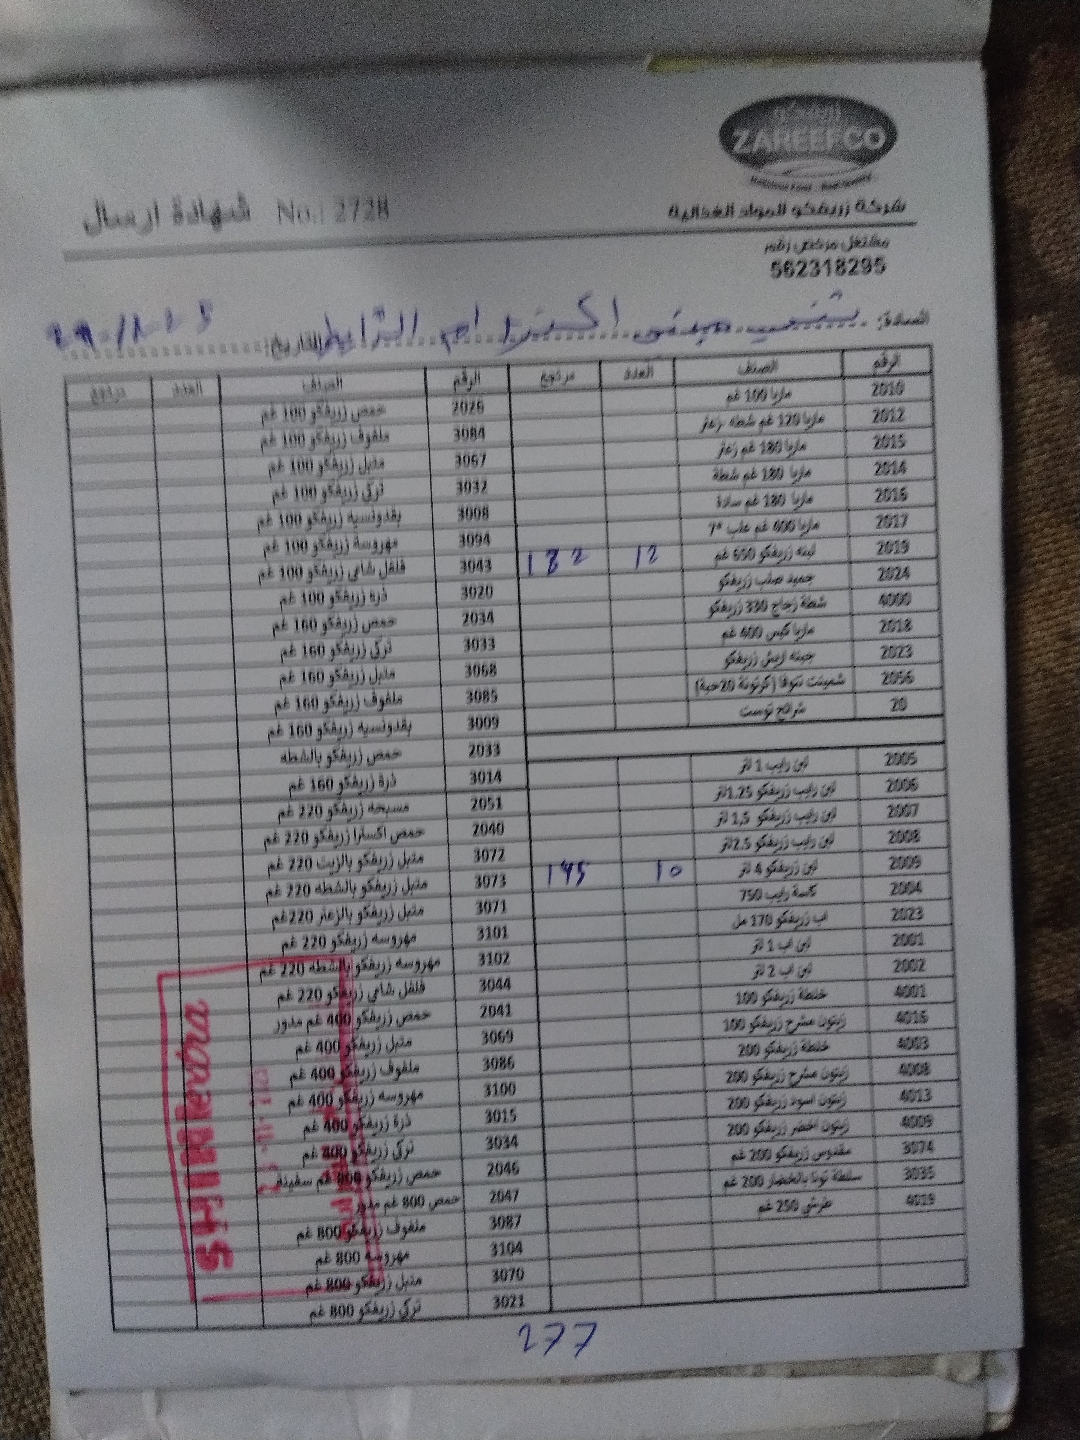 ZAREEFCO
شركة زريفكو للمواد الغذائية
شهادة ارسال No.: 2728
مشتغل مرخص رقم
562318295
السادة:
التاريخ:
الرقم الصنف العدد مرتجع الرقم الصنف العدد مرتجع
2010 ماريا 100 غم 2026 حمص زريفكو 100 غم
2012 ماريا 120 غم شطة زعتر 3084 ملفوف زريفكو 100 غم
2015 ماريا 180 غم زعتر 3067 متبل زريفكو 100 غم
2014 ماريا 180 غم شطة 3032 تركي زريفكو 100 غم
2016 ماريا 180 غم سادة 3008 بقدونسيه زريفكو 100 غم
2017 ماريا 400 غم علب 3094 مهروسة زريفكو 100 غم
2019 لبنه زريفكو 650 غم 12 182 3043 فلفل شامي زريفكو 100 غم
2024 جميد صلب زريفكو 3020 ذرة زريفكو 100 غم
4000 شطة زجاج 330 زريفكو 2034 حمص زريفكو 160 غم
2018 ماريا كيس 400 غم 3033 تركي زريفكو 160 غم
2023 جبنه زريفكو 3068 متبل زريفكو 160 غم
2056 شمينت تنوفا (كرتونة 20حبة) 3085 ملفوف زريفكو 160 غم
20 شرائح توست 3009 بقدونسيه زريفكو 160 غم
2033 حمص زريفكو بالشطه
2005 لبن رايب 1 لتر 3014 ذرة زريفكو 160 غم
2006 لبن رايب زريفكو 1.25لتر 2051 مسبحه زريفكو 220 غم
2007 لبن رايب زريفكو 1,5 لتر 2040 حمص اكسترا زريفكو 220 غم
2008 لبن رايب زريفكو 2.5لتر 3072 متبل زريفكو بالزيت 220 غم
2009 لبن زريفكو 4 لتر 10 145 3073 متبل زريفكو بالشطه 220 غم
2004 كاسة رايب 750 3071 متبل زريفكو بالزعتر 220غم
2023 اب زريفكو 170 مل 3101 مهروسه زريفكو 220 غم
2001 لبن اب 1 لتر 3102 مهروسه زريفكو بالشطه 220 غم
2002 لبن اب 2 لتر 3044 فلفل شامي زريفكو 220 غم
4001 خلطة زريفكو 100 2041 حمص زريفكو 400 غم مدور
4016 زيتون مشرح زريفكو 100 3069 متبل زريفكو 400 غم
4003 خلطة زريفكو 200 3086 ملفوف زريفكو 400 غم
4008 زيتون مشرح زريفكو 200 3100 مهروسه زريفكو 400 غم
4013 زيتون اسود زريفكو 200 3015 ذرة زريفكو 400 غم
4009 زيتون اخضر زريفكو 200 3034 تركي زريفكو 400 غم
3074 مقدوس زريفكو 200 غم 2046 حمص زريفكو 800 غم سفينة
3035 سلطة تونا بالخضار 200 غم 2047 حمص 800 غم مدور
4019 طرشي 250 غم 3087 ملفوف زريفكو 800 غم
3104 مهروسه 800 غم
3070 متبل زريفكو 800 غم
3021 تركي زريفكو 800 غم
277